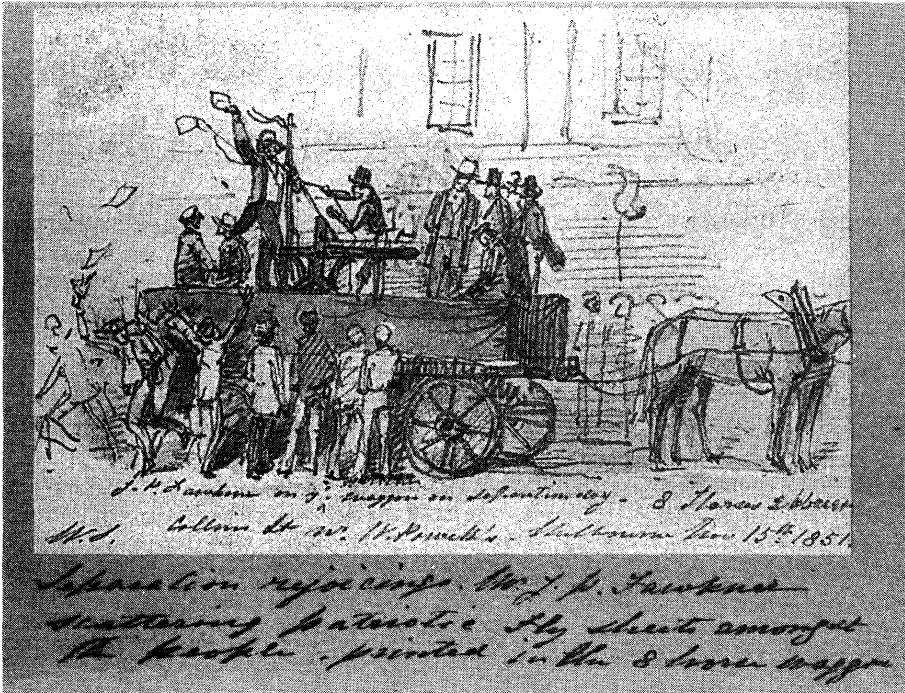 J. P. Fawkner in ye waggon on Separation day - 8 Horses
W.S. Collins St nr. Melbourne Nov 15th 1851.
Separation rejoicings. Mr J. P. Fawkner
scattering patriotic Fly sheets amongst
the people - printed in the 8 horse waggon